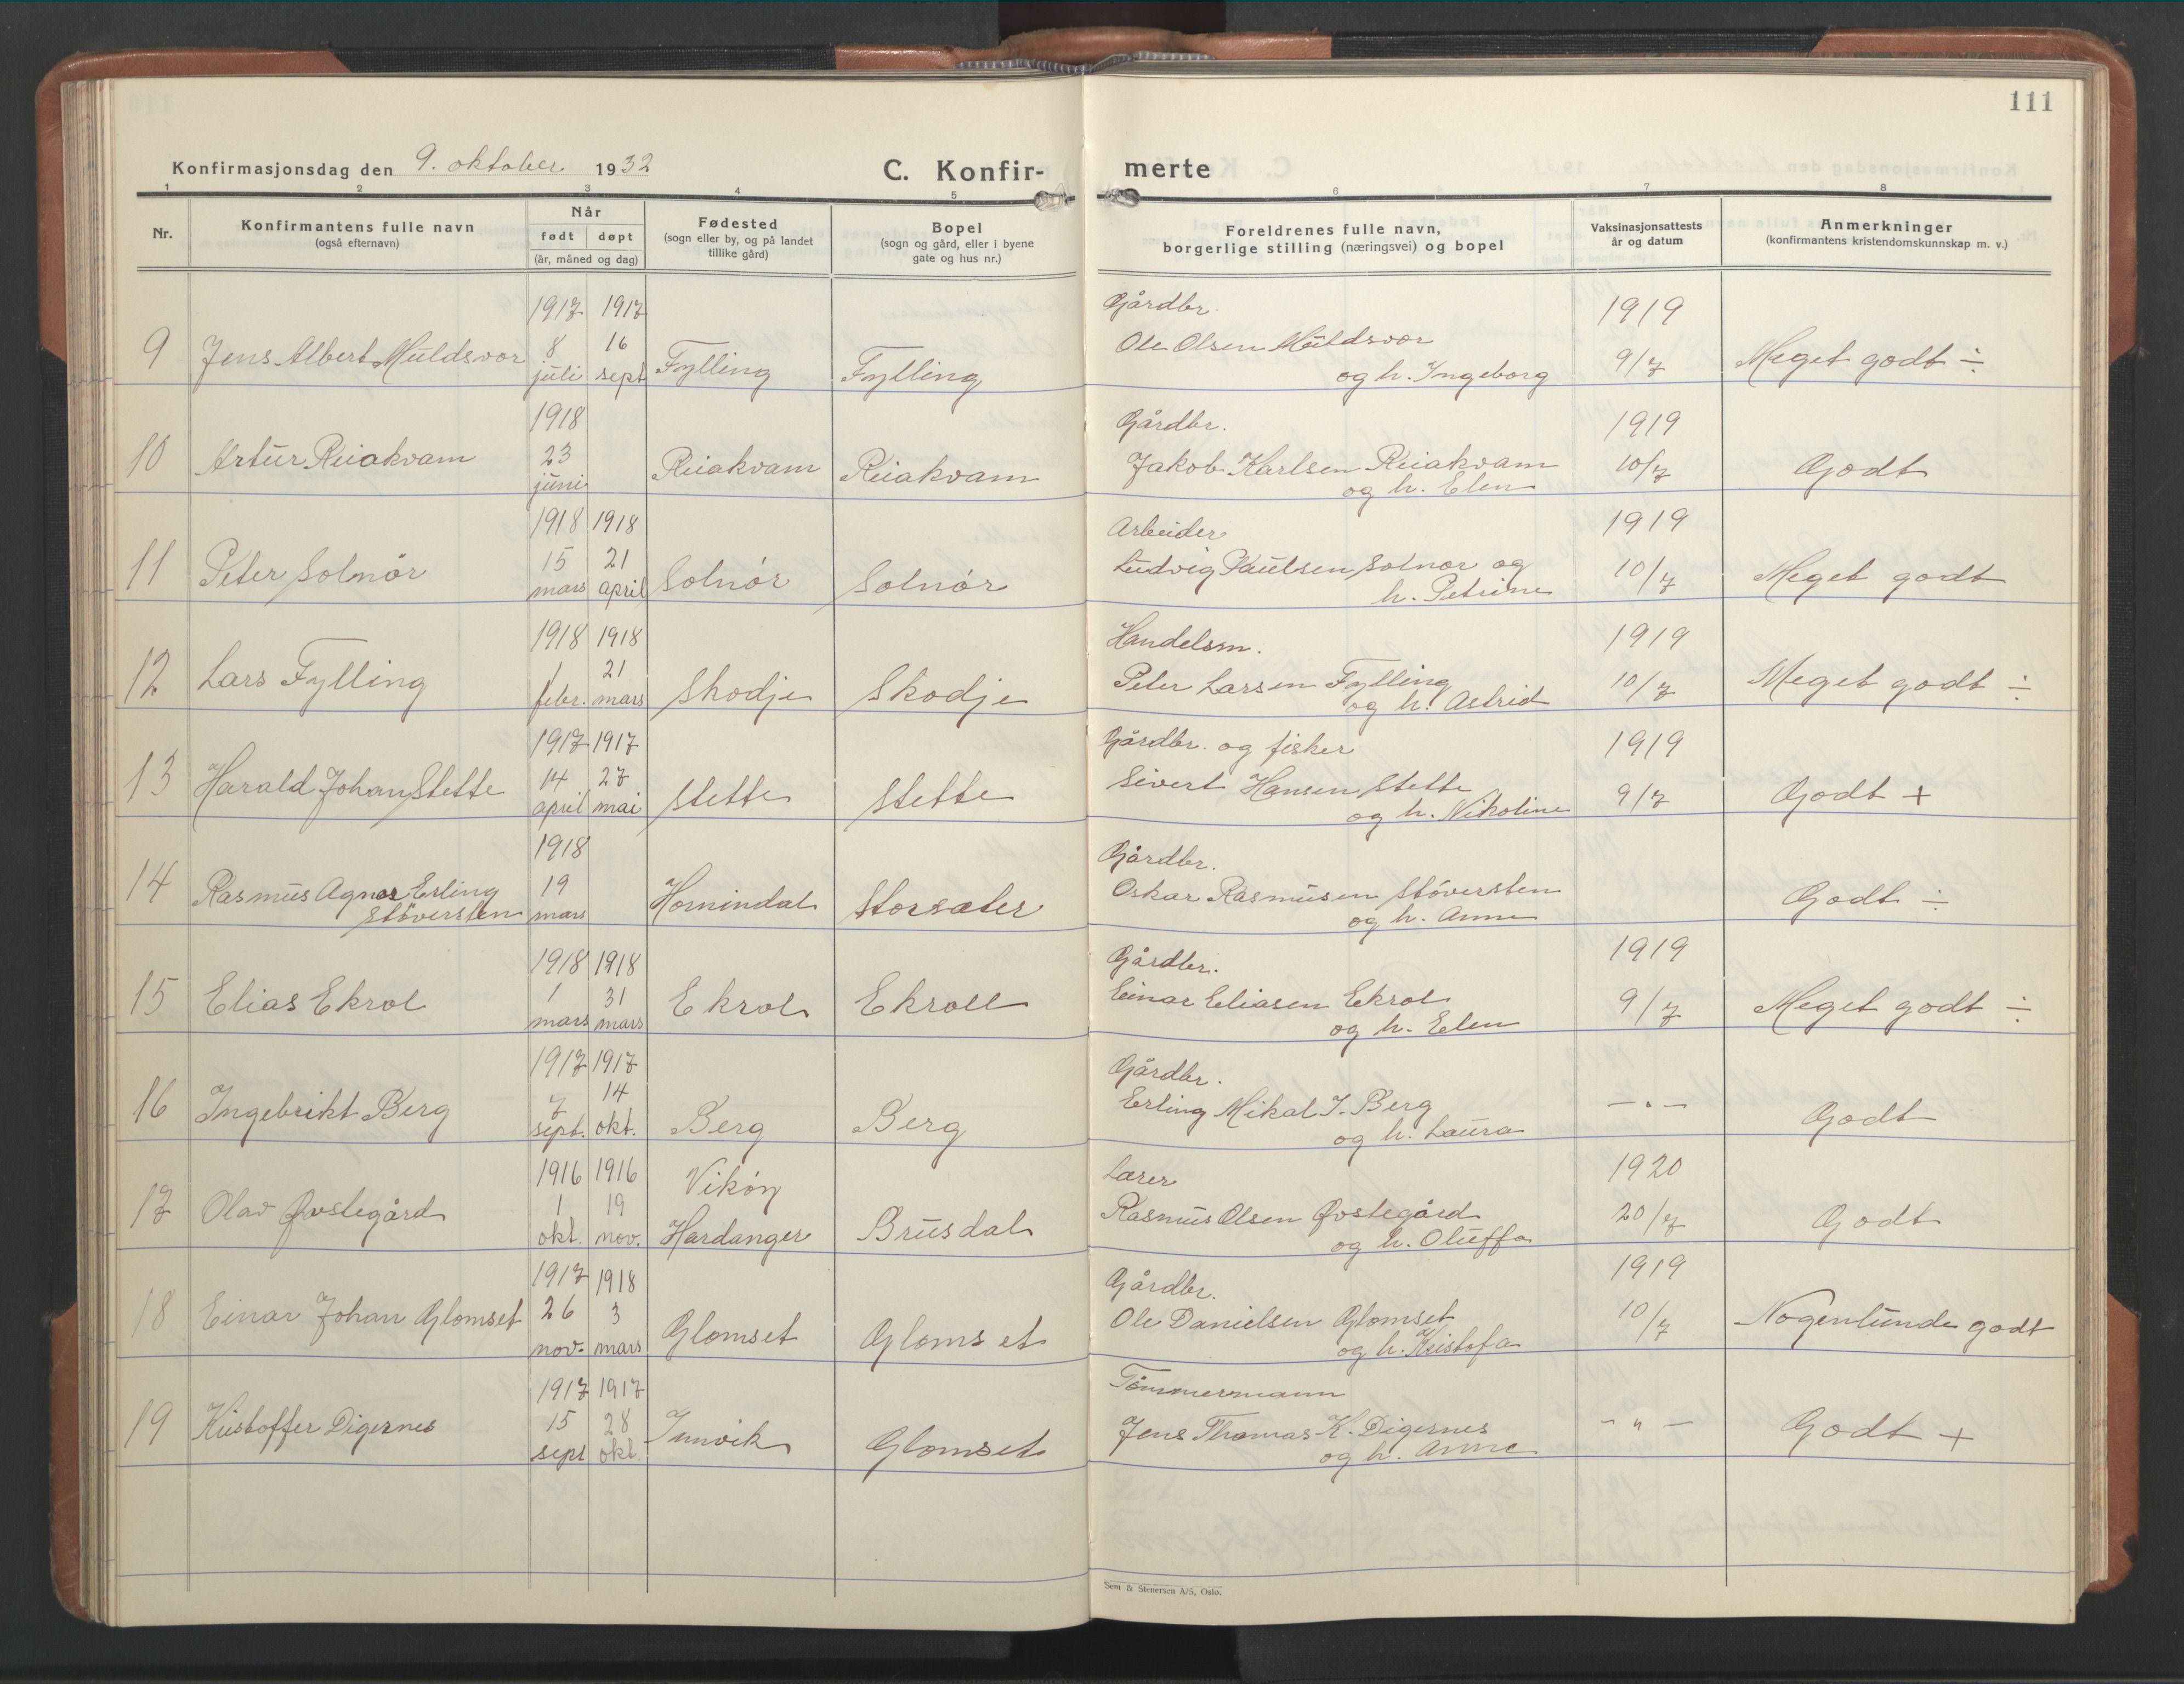 111
Konfirmasjonsdag den 9. oktober 1932
C. Konfir-
merte
1 2 3 4 5 6 7 8
Nr.
Konfirmantens fulle navn
(også efternavn)
Når
født døpt
(år, måned og dag)
Fødested
(sogn eller by, og på landet
tillike gård)
Bopel
(sogn og gård, eller i byene
gate og hus nr.)
Foreldrenes fulle navn,
borgerlige stilling (næringsvei) og bopel
Vaksinasjonsattests
år og datum
Anmerkninger
(konfirmantens kristendomskunnskap m. v.)
1917 1917 Gårdbr. 1919
9 Jens Albert Muldsvor 8 16 Fylling Fylling Ole Olsen Muldsvor 9/7 Meget godt ÷
juli sept og h. Ingeborg
1918 Gårdbr. 1919
10 Artur Reiakvam 23 Reiakvam Reiakvam Jakob Karlsen Reiakvam 10/7 Godt
juni og h. Elen
1918 1918 Arbeider 1919
11 Peter Solnör 15 21 Solnör Solnör Ludvig Paulsen Solnör og 10/7 Meget godt
mars april h. Petrine
1918 1918 Handelsm. 1919
12 Lars Fylling 1 21 Skodje Skodje Peter Larsen Fylling 10/7 Meget godt ÷
febr. mars og h. Astrid
1917 1917 Gårdbr. og fisker 1919
13 Harald Johan Stette 14 27 Stette Stette Sivert Hansen Stette 9/7 Godt +
april mai og h. Nikoline
1918 Gårdbr.
14 Rasmus Agnar Erling 19 Hornindal Storsæter Oskar Rasmusen Stöversten Godt ÷
Stöversten mars og h. Anne
1918 1918 Gårdbr. 1919
15 Elias Ekrol 1 31 Ekrol Ekroll Einar Eliasen Ekrol 9/7 Meget godt ÷
mars mars og h. Elen
1917 1917 Gårdbr.
16 Ingebrikt Berg 7 14 Berg Berg Erling Mikal I. Berg — „ — Godt
sept. okt. og h. Laura
1916 1916 Vikøy Lærer 1920
17 Olav Øvstegård 1 19 Hardanger Brusdal Rasmus Olsen Øvstegård 20/7 Godt
okt. nov. og h. Oluffa
1917 1918 Gårdbr. 1919
18 Einar Johan Glomset 26 3 Glomset Glomset Ole Danielsen Glomset 10/7 Nogenlunde godt
nov. mars og h. Kristofa
1917 1917 Tömmermann
19 Kristoffer Digernes 15 28 Innvik Glomset Jens Thomas K. Digernes — „ — Godt +
sept okt. og h. Anne
Sem & Stenersen A/S, Oslo.